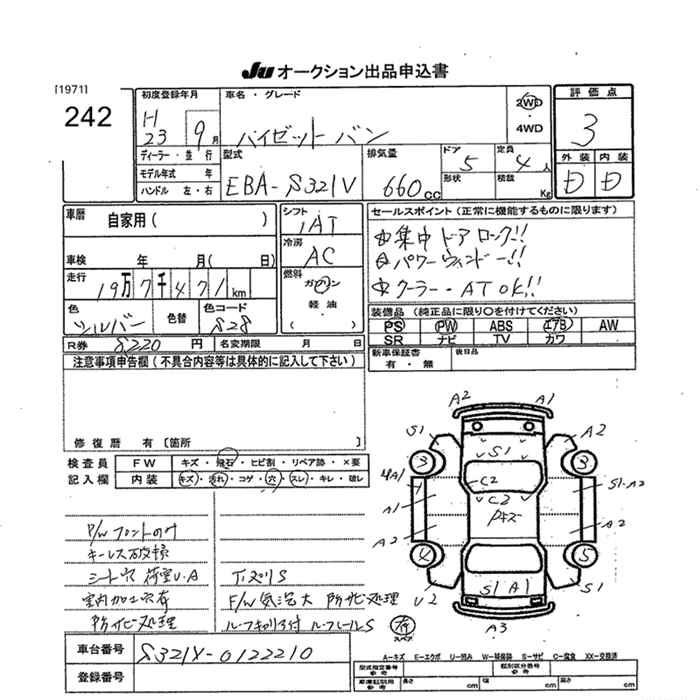 Ju オークション出品申込書
[1971]
242
初度登録年月
H 23 9月
車名・グレード
ハイゼットバン
2WD
・
4WD
評価点
3
外装 内装
D D
ディーラー・並行
モデル年式 年
ハンドル 左・右
型式
EBA-S321V
排気量
660cc
ドア
5
形状
定員
4人
積載
Kg
車歴
自家用( )
シフト
IAT
冷房
AC
燃料
ガソリン
軽油
( )
車検 年 月( 日)
走行
19万7千471km
色
シルバー
色替
色コード
S28
R券 8220円
名変期限 月 日
セールスポイント(正常に機能するものに限ります)
☆集中ドアロック!!
☆パワーウィンドー!!
☆クーラー・AT OK!!
装備品(純正品に限り○を付けてください)
PS PW ABS エアB AW
SR ナビ TV カワ
新車保証書
有・無
後日品
注意事項申告欄(不具合内容等は具体的に記入して下さい)
修復歴 有〔箇所 〕
検査員
記入欄
FW キズ・飛石・ヒビ割・リペア跡・×要
内装 キズ・汚れ・コゲ・穴・スレ・キレ・破レ
P/Wフロントのみ
キーレス故障
シート穴 荷室U・A
室内加工穴有
防サビ処理
下ズリS
F/W気泡大 防サビ処理
車台番号 S321V-0122210
登録番号
A2 A1
S1 S1 A2
3 3
C2
C2
A1 1 1 S1・A2
A1
A2 A2
4 5
U2 S1 A1 S1
A3
荷
スペア
A−キズ E−エクボ U−凹み W−補修跡 S−サビ C−腐食 XX−交換済
型式指定番号
参考
類別区分番号
参考
車庫証明用
参考
長さ cm 幅 cm 高さ cm